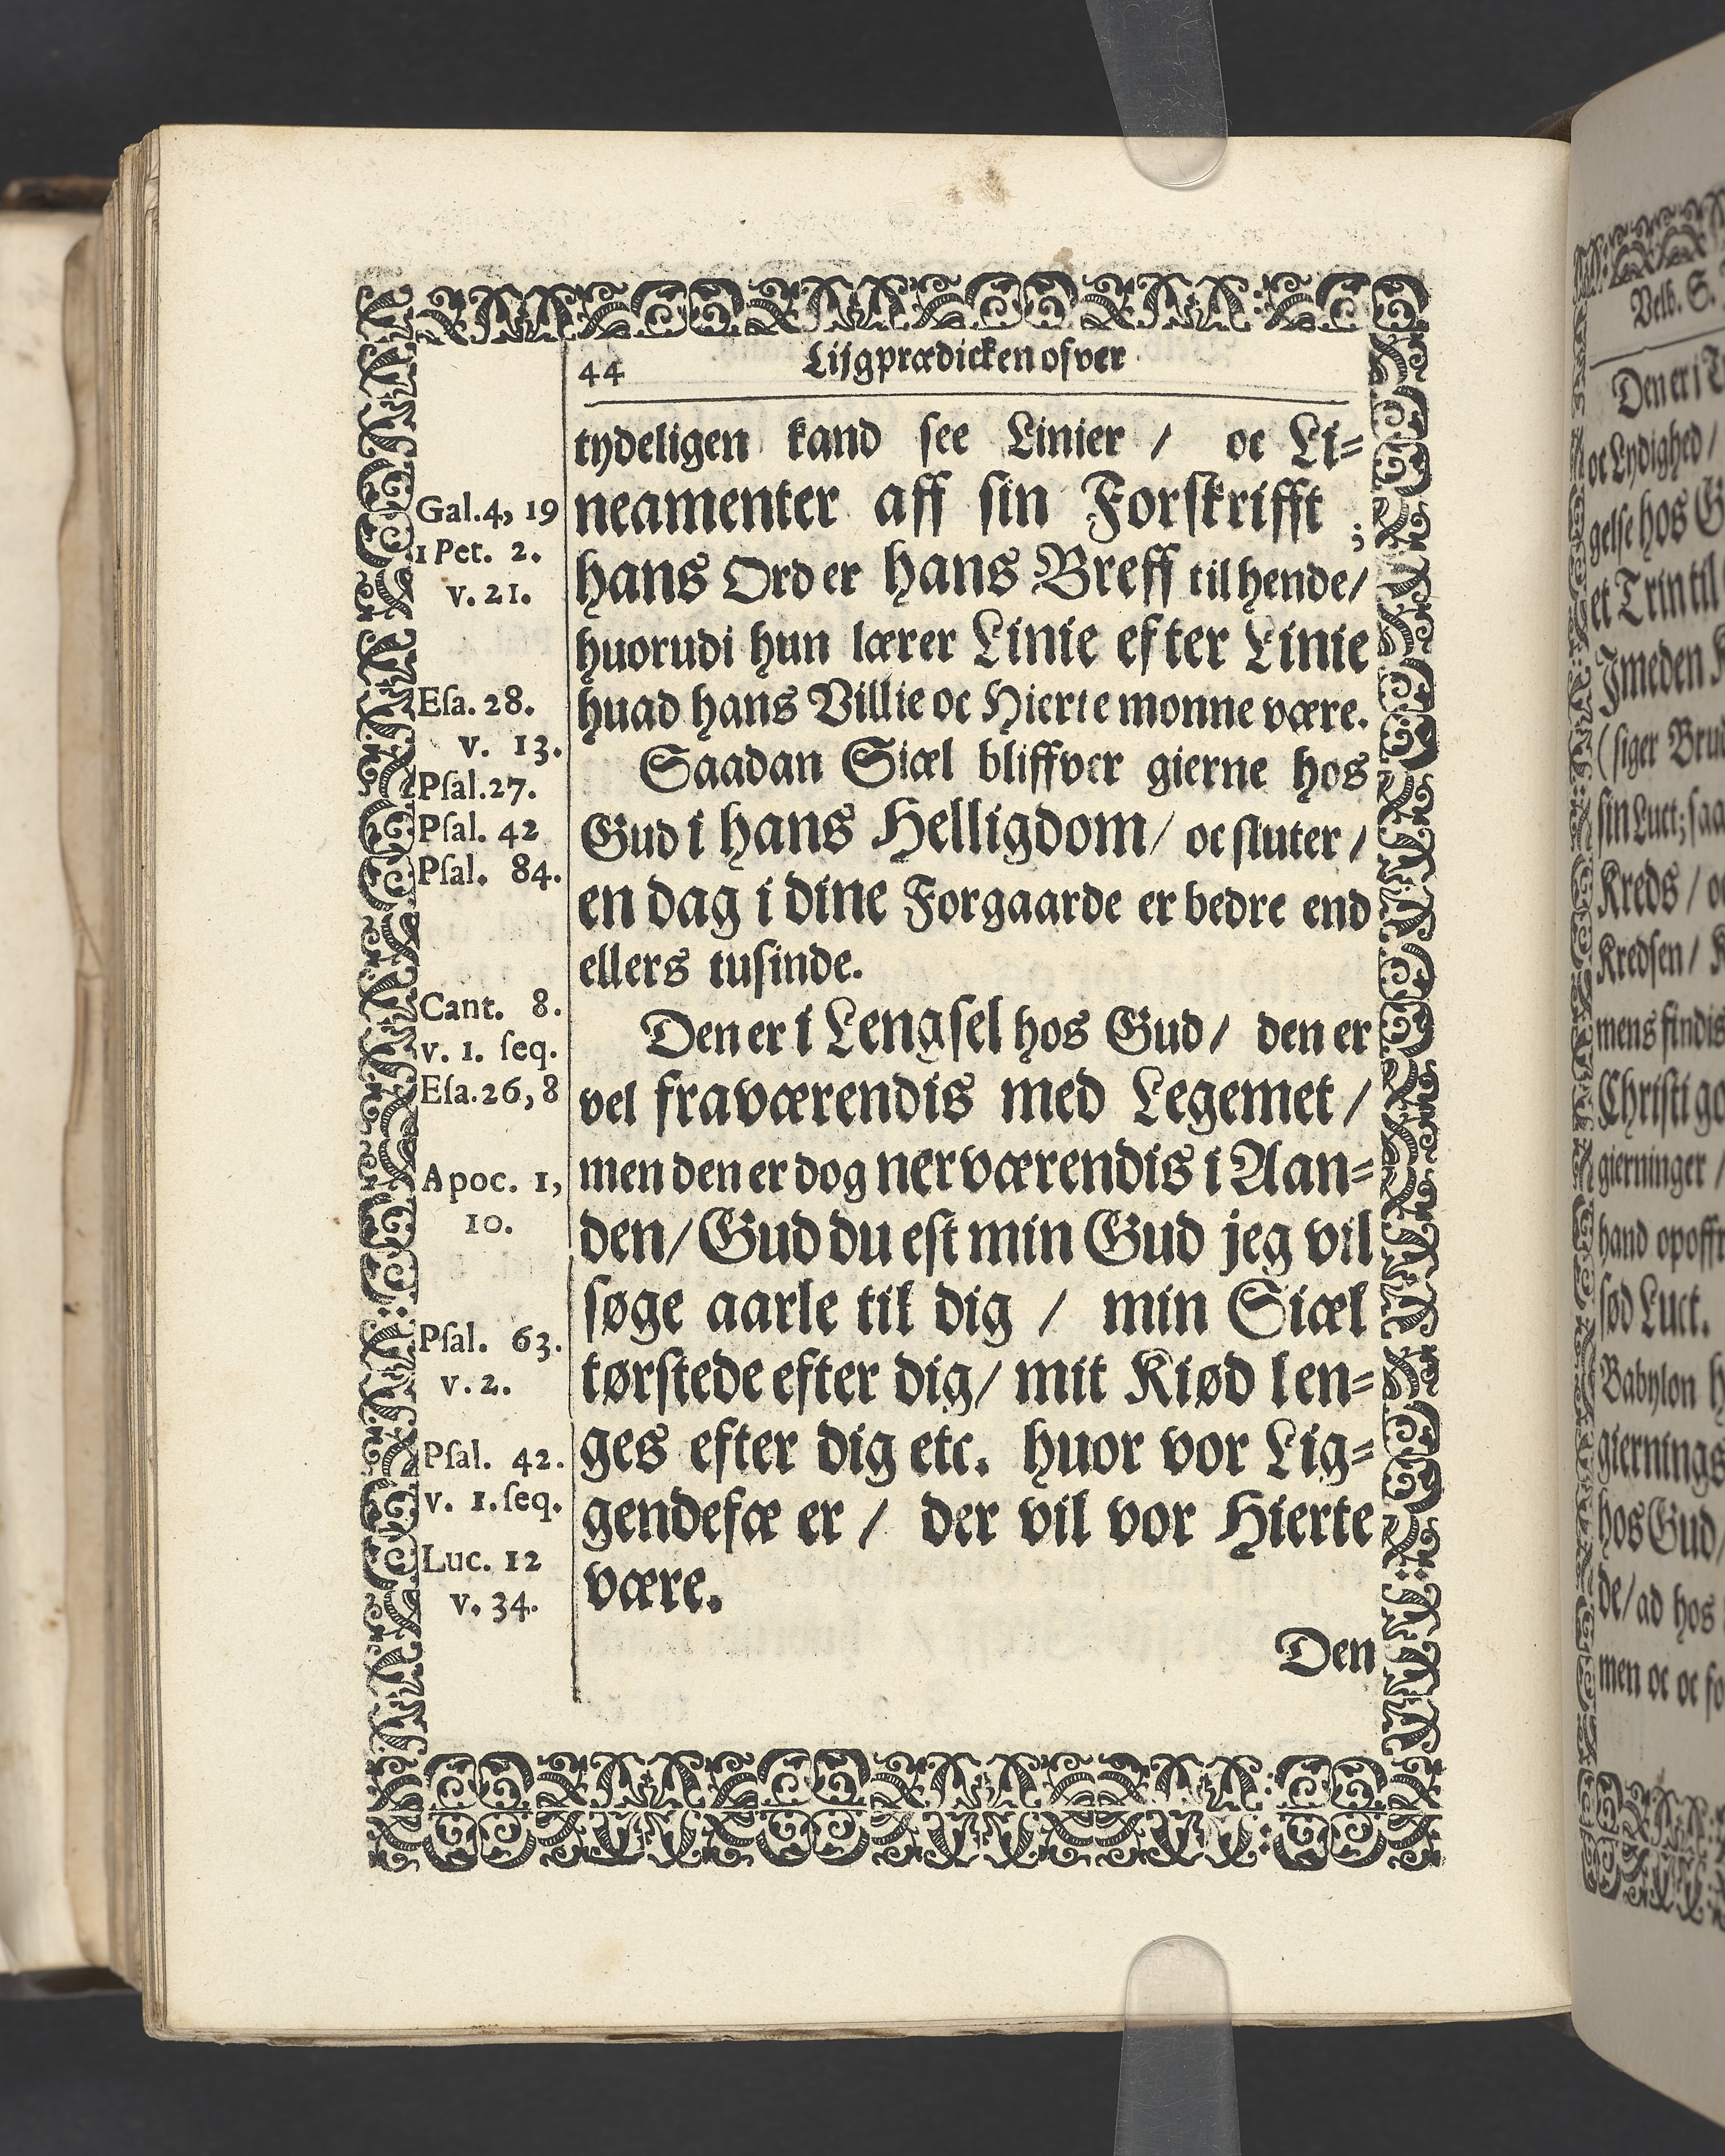 44 Lijgprædicken ofver
tydeligen kand see Linier / oc Li=
neamenter aff sin Forskrifft ;
hans Ord er hans Breff til hende/
huorudi hun lærer Linie efter Linie
huad hans Villie oc Hierte monne være.
Saadan Siæl bliffver gierne hos
Gud i hans Helligdom/ oc sluter /
en dag i dine Forgaarde er bedre end
ellers tusinde.
Den er i Lengsel hos Gud/ den er
vel fraværendis med Legemet /
men den er dog nerværendis i Aan=
den/ Gud du est min Gud jeg vil
søge aarle til dig / min Siæl
tørstede efter dig/ mit Kiød len=
ges efter dig etc. huor vor Lig=
gendefæ er / der vil vor Hierte
være.
Den
Gal.4, 19
1 Pet. 2.
v. 21.
Esa. 28.
v. 13.
Psal.27.
Psal. 42
Psal. 84.
Cant. 8.
v. 1. seq.
Esa.26, 8
Apoc. 1,
10.
Psal. 63.
v. 2.
Psal. 42.
v. 1. seq.
Luc. 12
v. 34.
Velb. S.
Den er i
oc Lydighed /
gelse hos
et Trin til
Imeden
(siger
sin Luct; saa
Kreds /
Kredsen /
mens findis
Christi
gierninger /
hand
sød Luct.
Babylon
giernings
hos Gud/
de/ ad hos
men oc oc